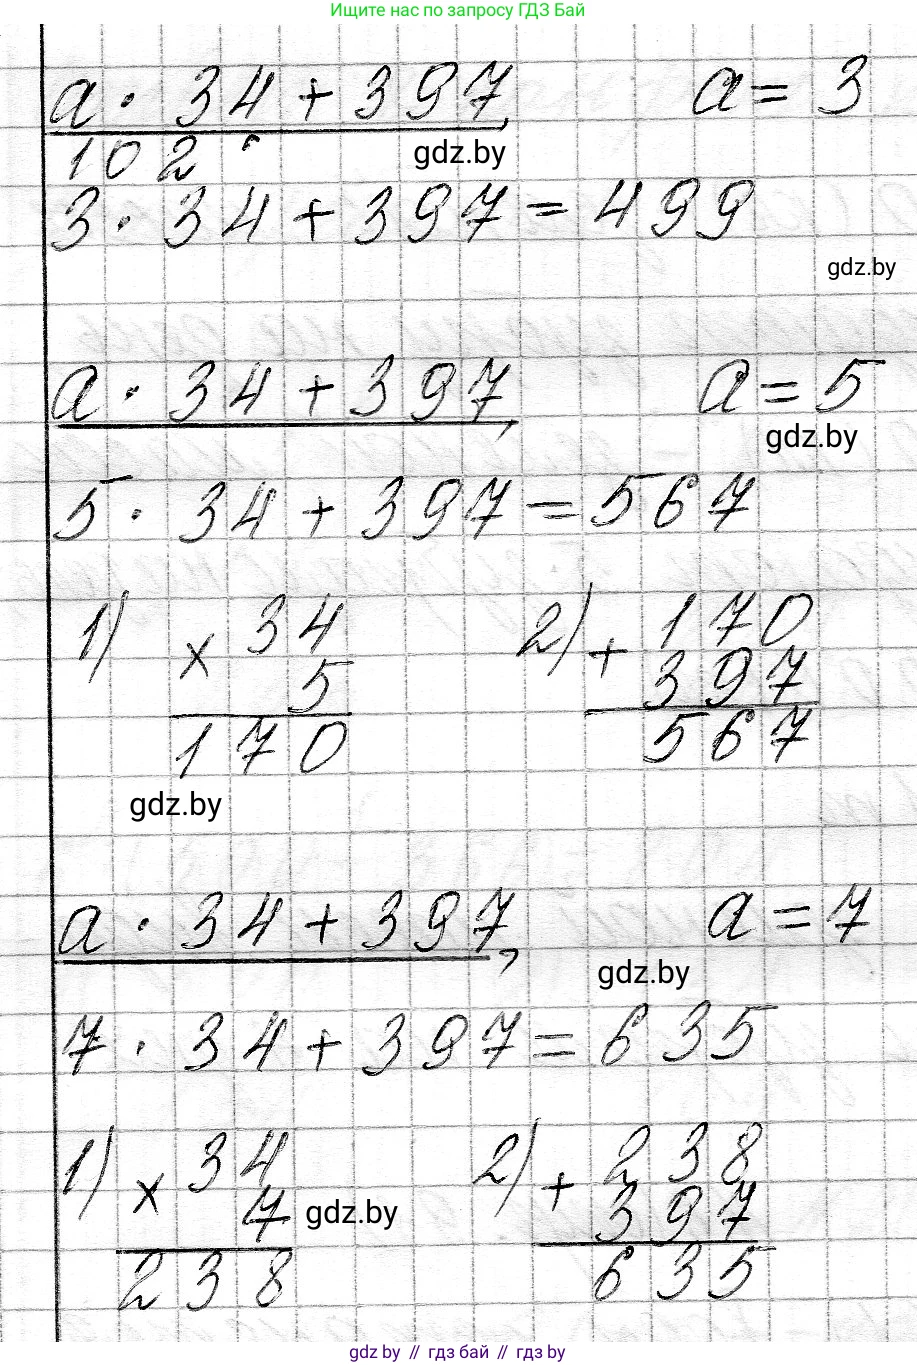 Ищите нас по запросу ГДЗ Бай
a · 34 + 397, a = 3
gdz.by
102
3 · 34 + 397 = 499
gdz.by
a · 34 + 397, a = 5
gdz.by
5 · 34 + 397 = 567
1) × 34 2) + 170
5 397
170 567
gdz.by
a · 34 + 397, a = 7
gdz.by
7 · 34 + 397 = 635
1) × 34 2) + 238
7 gdz.by 397
238 635
gdz.by // гдз бай // gdz.by